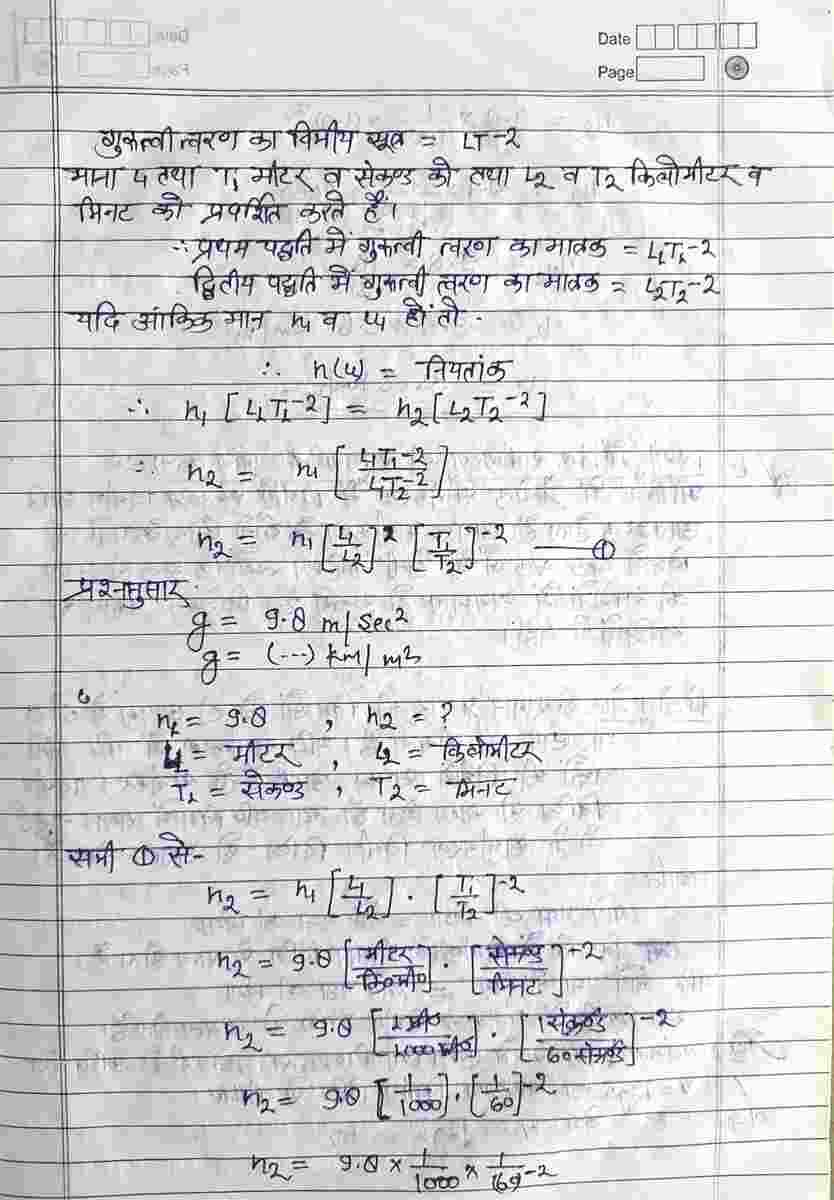 Date
Page
गुरुत्वी त्वरण का विमीय सूत्र = LT-2
माना L1 तथा T1 मीटर व सेकण्ड को तथा L2 व T2 किलोमीटर व
मिनट को प्रदर्शित करते हैं।
∴ प्रथम पद्धति में गुरुत्वी त्वरण का मात्रक = L1T1-2
द्वितीय पद्धति में गुरुत्वी त्वरण का मात्रक = L2T2-2
यदि आंकिक मान n1 व u1 हों तो -
∴ n(u) = नियतांक
∴ n1 [L1T1-2] = n2 [L2T2-2]
∴ n2 = n1 [L1T1-2/L2T2-2]
n2 = n1 [L1/L2] [T1/T2]-2 —— ①
प्रश्नानुसार
g = 9.8 m/Sec2
g = (---) km/m2
n1 = 9.8 , n2 = ?
L1 = मीटर , L2 = किलोमीटर
T1 = सेकण्ड , T2 = मिनट
समी ① से-
n2 = n1 [L1/L2] . [T1/T2]-2
n2 = 9.8 [मीटर/कि०मी०] . [सेकण्ड/मिनट]-2
n2 = 9.8 [1मी०/1000मी०] . [1सेकण्ड/60सेकण्ड]-2
n2 = 9.8 [1/1000] . [1/60]-2
n2 = 9.8 × 1/1000 × 1/(60)-2